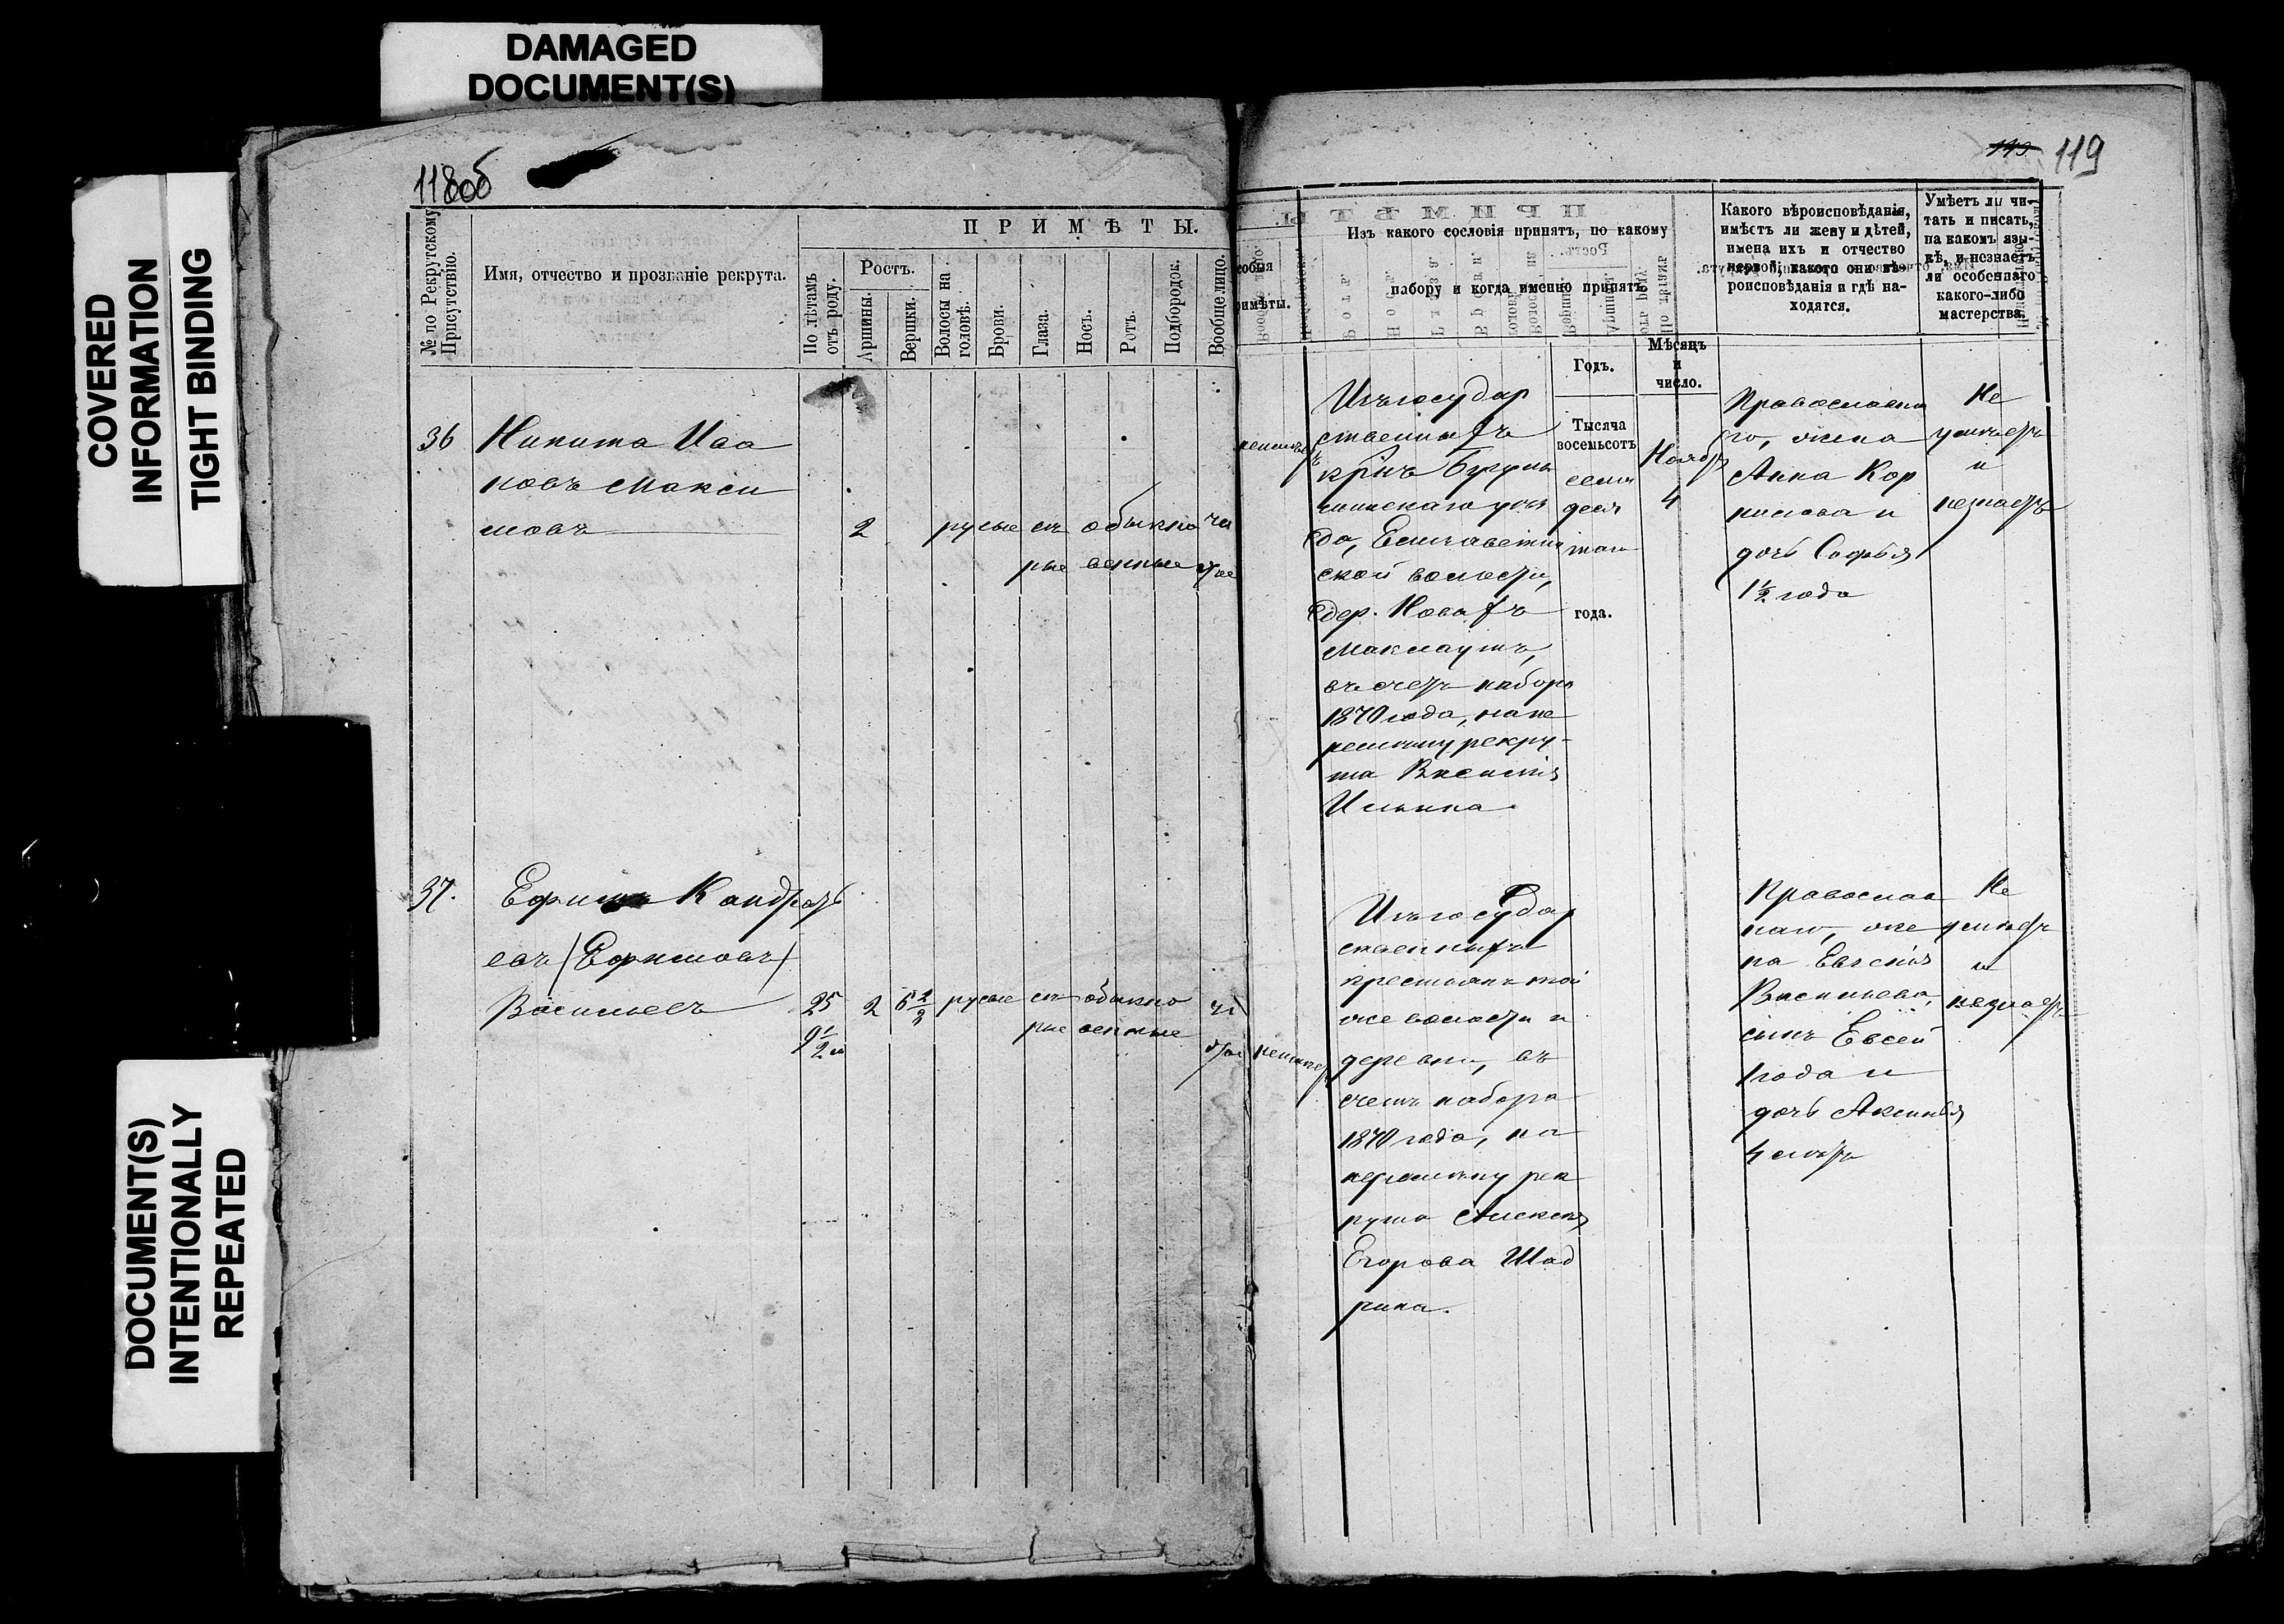 DAMAGED
DOCUMENT(S)
COVERED
INFORMATION
TIGHT BINDING
DOCUMENT(S)
INTENTIONALLY
REPEATED
118об
№ по Рекрутскому
Присутствію.
Имя, отчество и прозваніе рекрута.
ПРИМѢТЫ.
По лѣтамъ
отъ роду.
Ростъ.
Аршины.
Вершки.
Волосы на
головѣ.
Брови.
Глаза.
Носъ.
Ротъ.
Подбородок.
Вообще лицо.
36
Никита Ива
новъ Макси
мовъ
2
русые
сѣ
рые
обыкно
венные
чи
стое
37.
Ефимъ Кандрать
евъ (Ефимовъ)
Васильевъ
25
9 1/2 м
2
русые
сѣ
рые
обыкно
венные
чи
стое
119
собыя
римѣты.
Изъ какого сословія принятъ, по какому
набору и когда именно принятъ.
Годъ.
Мѣсяцъ
и
число.
Какого вѣроисповѣданія,
имѣетъ ли жену и дѣтей,
имена ихъ и отчество
первой, какого они вѣ-
роисповѣданія и гдѣ на-
ходятся.
Умѣетъ ли чи-
тать и писать,
на какомъ язы-
кѣ, и незнаетъ
ли особеннаго
какого-либо
мастерства.
Изъ государ
ственныхъ
крнъ Бугуль
минскаго уѣз
да, Елизаветин
ской волости,
дер. Новыхъ
Маклаушъ,
въ счетъ набора
1870 года, на пе
ремѣну рекру-
та Василія
Ильина.
Тысяча
восемьсотъ
семи
деся
таго
года.
Нояб
4
Православна
го, жена
Анна Кор
нилова и
дочь Софья
1 1/2 года
Не
умѣетъ
и
незнаетъ
Изъ государ
ственныхъ
крестьянъ той
же волости и
деревни, въ
счетъ набора
1870 года, на
перемѣну рек
рута Алексѣя
Егорова Шад
рина.
Православ
наго, же
на Евгенія
Васильева,
сынъ Евсей
1 года и
дочь Аксинья
4 лѣтъ
Не
умѣетъ
и
незнаетъ